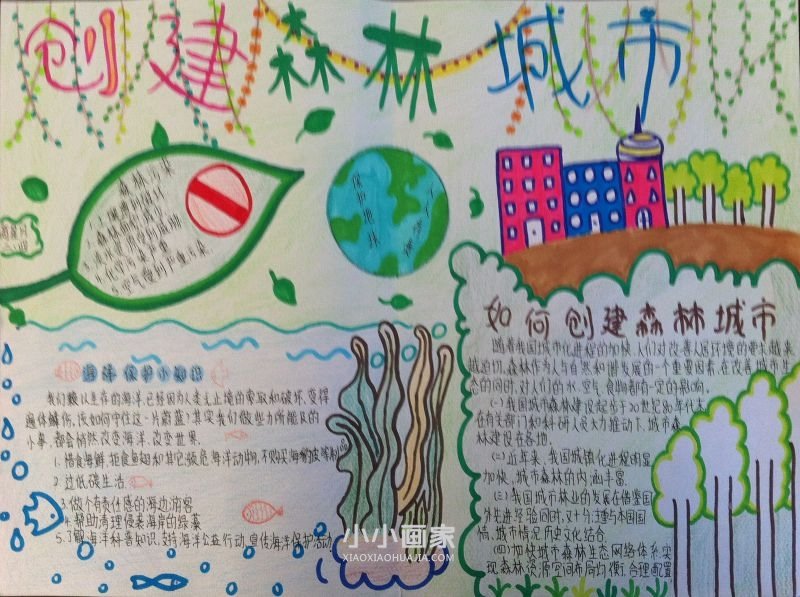 创建森林城市
森林污染
保护地球
人人有责
如何创建森林城市
随着我国城市化进程的加快,人们对改善人居环境的要求越来
越迫切。森林作为人与自然和谐发展的一个重要因素,在改善城市生
态的同时,对人们的水、空气、食物都有一定的影响。
(一)我国城市森林建设起步于20世纪80年代,
在有关部门和科研人员大力推动下,城市森
林建设在各地.
(二)近年来,我国城镇化进程明显
加快,城市森林的内涵丰富.
(三)我国城市林业的发展在借鉴国
外先进经验同时,又十分注重与本国国
情、城市情况、历史文化结合.
(四)加快城市森林生态网络体系,实
现森林资源空间布局均衡、合理配置
海洋保护小知识
我们赖以生存的海洋已经因为人类无止境的索取和破坏,变得
遍体鳞伤,该如何守住这一片蔚蓝?其实我们做些力所能及的
小事,都会悄然改变海洋,改变世界.
1.惜食海鲜,拒食鱼翅和其它濒危海洋动物,不购买海龟玳瑁制品
2.过低碳生活
3.做个有责任感的海边游客
4.帮助清理侵袭海岸的绿藻
5.了解海洋科普知识,支持海洋公益行动,宣传海洋保护活动
小小画家
XIAOXIAOHUAJIA.COM